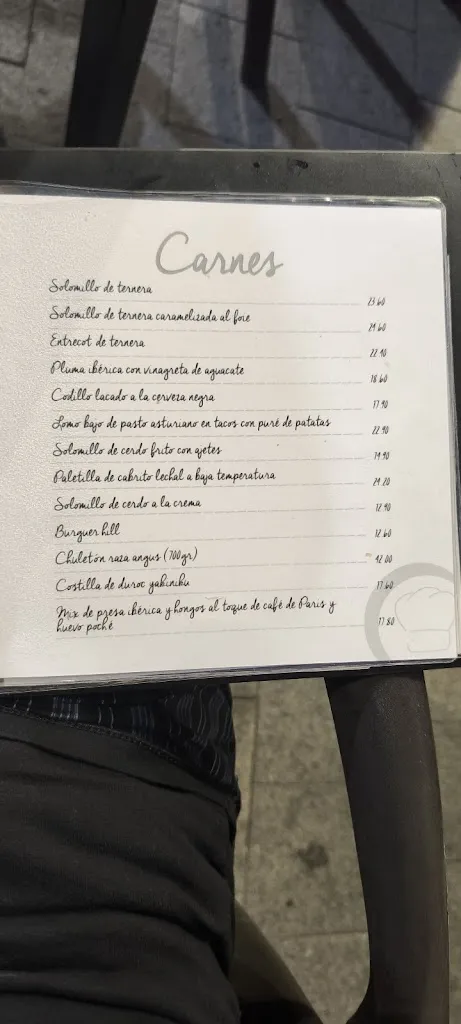 Carnes
Solomillo de ternera 23 60
Solomillo de ternera caramelizada al foie 24 60
Entrecot de ternera 22 90
Pluma ibérica con vinagreta de aguacate 18 60
Codillo lacado a la cerveza negra 17 90
Lomo bajo de pasto asturiano en tacos con puré de patatas 22 90
Solomillo de cerdo frito con ajetes 14 90
Paletilla de cabrito lechal a baja temperatura 24 20
Solomillo de cerdo a la crema 12 90
Burguer hill 12 60
Chuletón raza angus (700gr) 42 00
Costilla de duroc yakiniku 17 60
Mix de presa ibérica y hongos al toque de café de Paris y
huevo poché 17 80